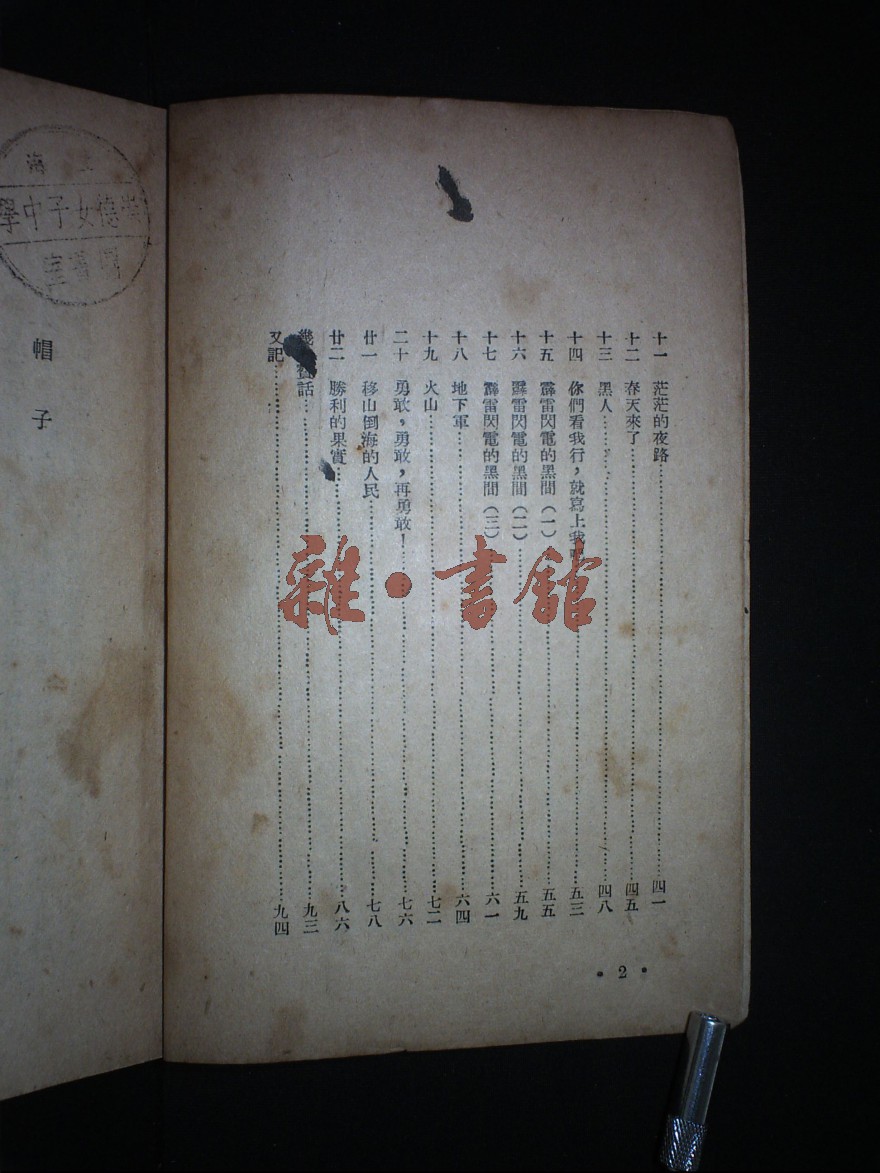 十一 茫茫的夜路……四一
十二 春天來了……四五
十三 黑人……四八
十四 你們看我行，就寫上我……五三
十五 霹雷閃電的黑間（一）……五五
十六 霹雷閃電的黑間（二）……五九
十七 霹雷閃電的黑間（三）……六一
十八 地下軍……六四
十九 火山……七二
二十 勇敢，勇敢，再勇敢！……七六
廿一 移山倒海的人民……七八
廿二 勝利的果實……八六
幾 話……九三
又記……九四
• 2 •
雜·書館
海
德女子中學
圖書室
帽子